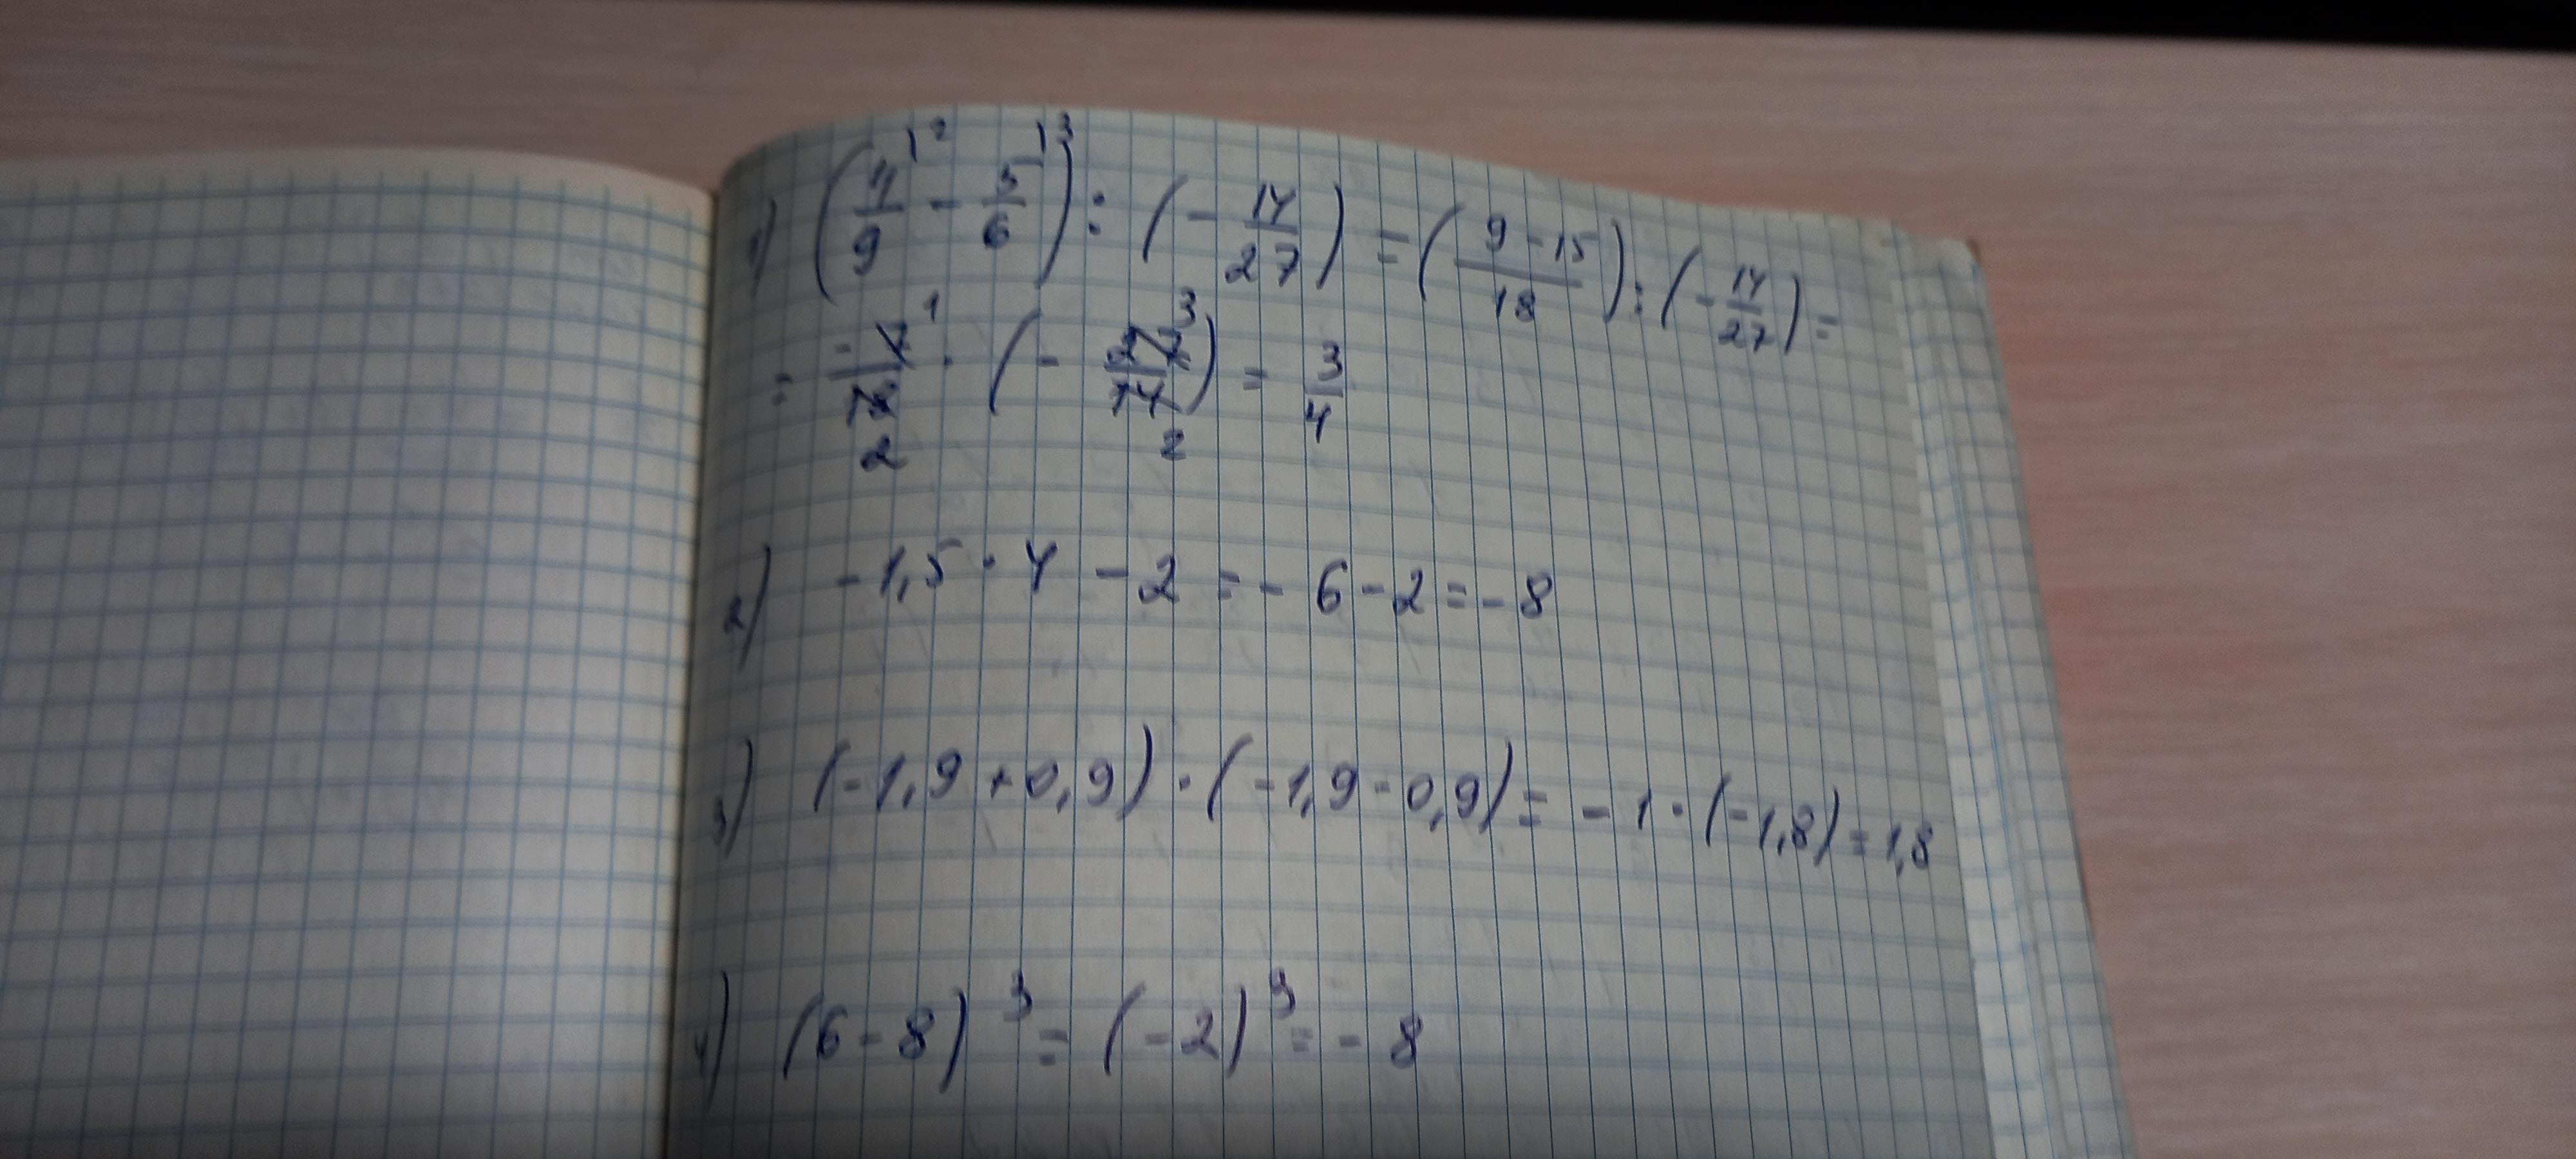 1) (4/9 |² - 5/6 |³) : (- 14/27) = (9 - 15 / 18) : (- 14/27) =
= -7 1 / 18 2 · (- 27 3 / 14 2) = 3/4
2) - 1,5 · 4 - 2 = - 6 - 2 = - 8
3) (-1,9 + 0,9) · (-1,9 - 0,9) = - 1 · (-1,8) = 1,8
4) (6 - 8)³ = (-2)³ = - 8